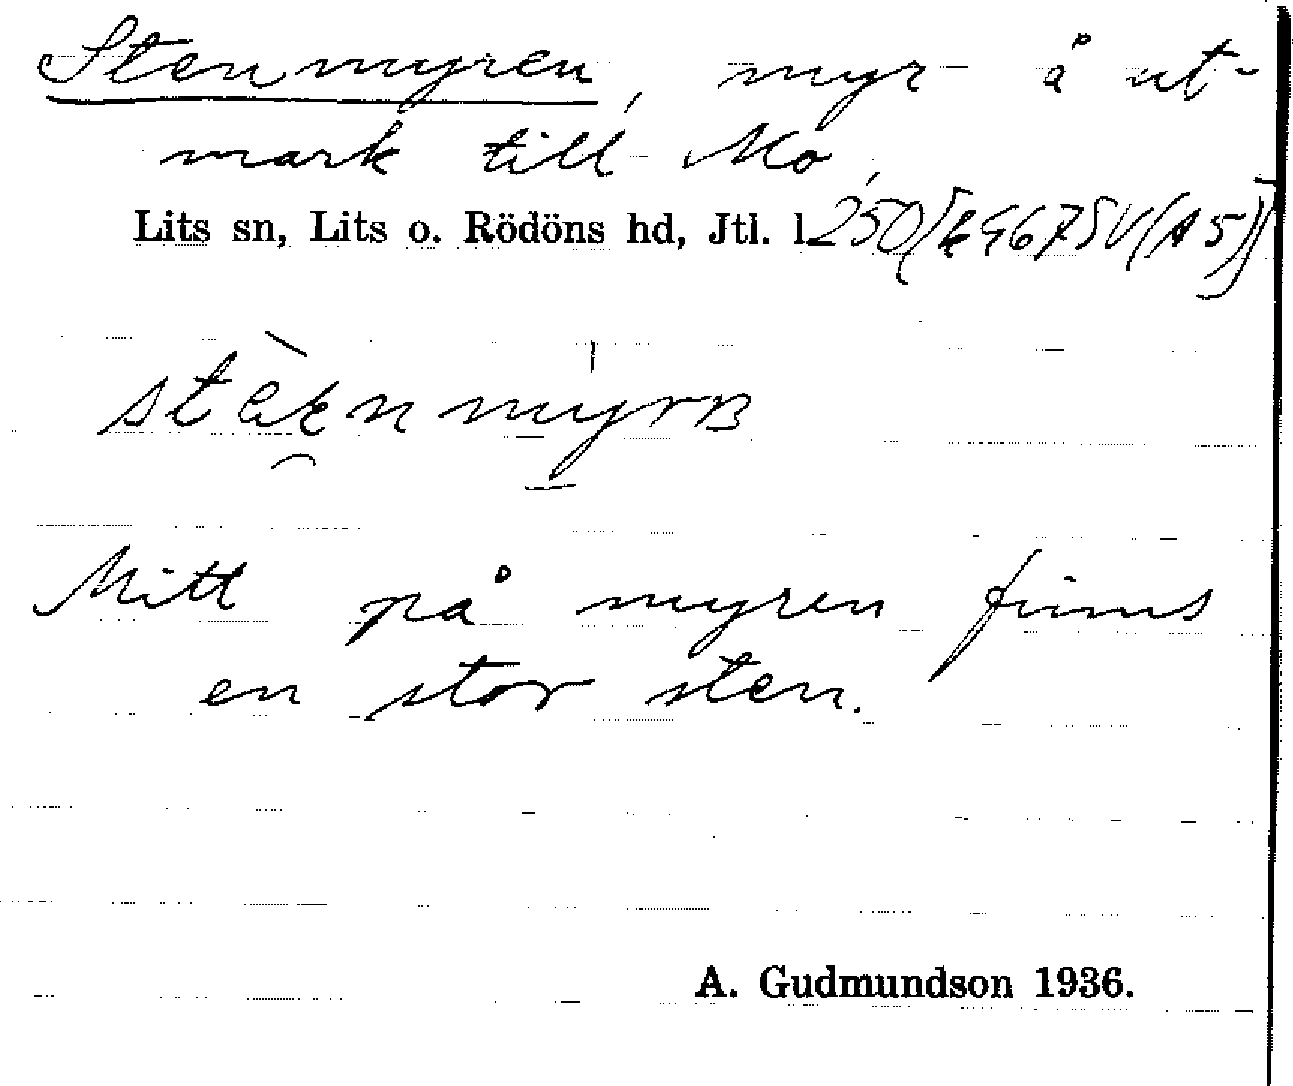 Stenmyren, myr å ut-
mark till Mo,
Lits sn, Lits o. Rödöns hd, Jtl. l.
Mitt på myren finns
en stor sten.
A. Gudmundson 1936.